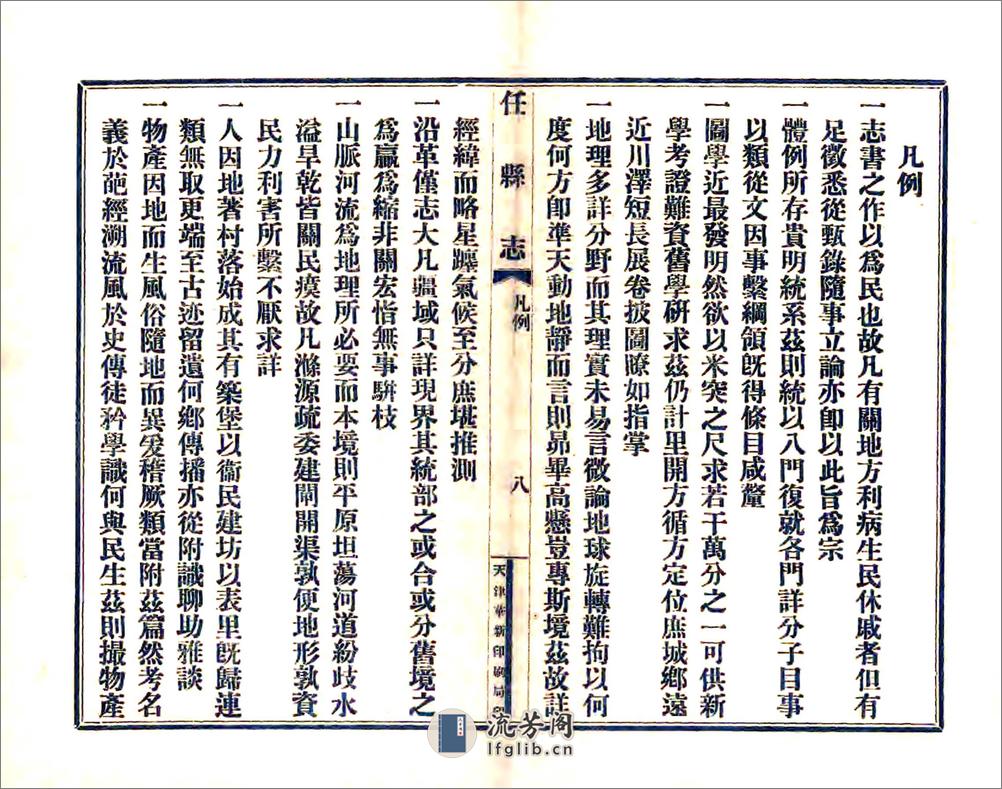 凡例
一志書之作以爲民也故凡有關地方利病生民休戚者但有
足徵悉從甄錄隨事立論亦卽以此旨爲宗
一體例所存貴明統系茲則統以八門復就各門詳分子目事
以類從文因事繫綱領旣得條目咸釐
一圖學近最發明然欲以米突之尺求若干萬分之一可供新
學考證難資舊學硏求茲仍計里開方循方定位庶城鄉遠
近川澤短長展卷披圖瞭如指掌
一地理多詳分野而其理實未易言微論地球旋轉難拘以何
度何方卽準天動地靜而言則昴畢高懸豈專斯境茲故詳
任縣志
凡例
八
天津華新印刷局印
經緯而略星躔氣候至分庶堪推測
一沿革僅志大凡疆域只詳現界其統部之或合或分舊境之
爲贏爲縮非關宏恉無事駢枝
一山脈河流爲地理所必要而本境則平原坦蕩河道紛歧水
溢旱乾皆關民瘼故凡滌源疏委建閘開渠孰便地形孰資
民力利害所繫不厭求詳
一人因地著村落始成其有築堡以衞民建坊以表里旣歸連
類無取更端至古迹留遺何鄉傳播亦從附識聊助雅談
一物產因地而生風俗隨地而異爰稽厥類當附茲篇然考名
義於葩經溯流風於史傳徒矜學識何與民生茲則撮物產
流芳阁
lfglib.cn